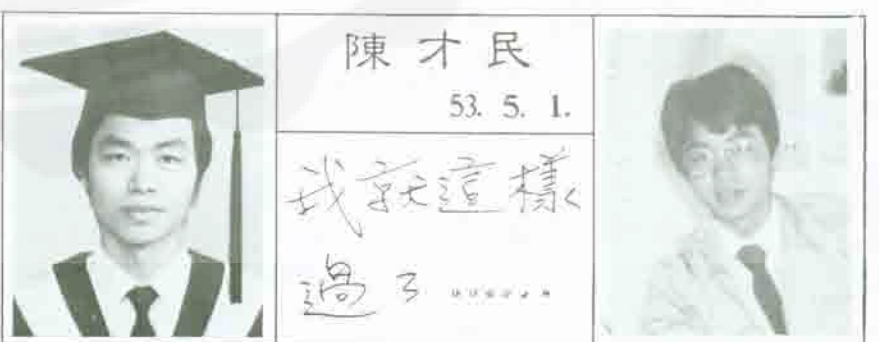 陳才民
53. 5. 1.
我就這樣
過了........